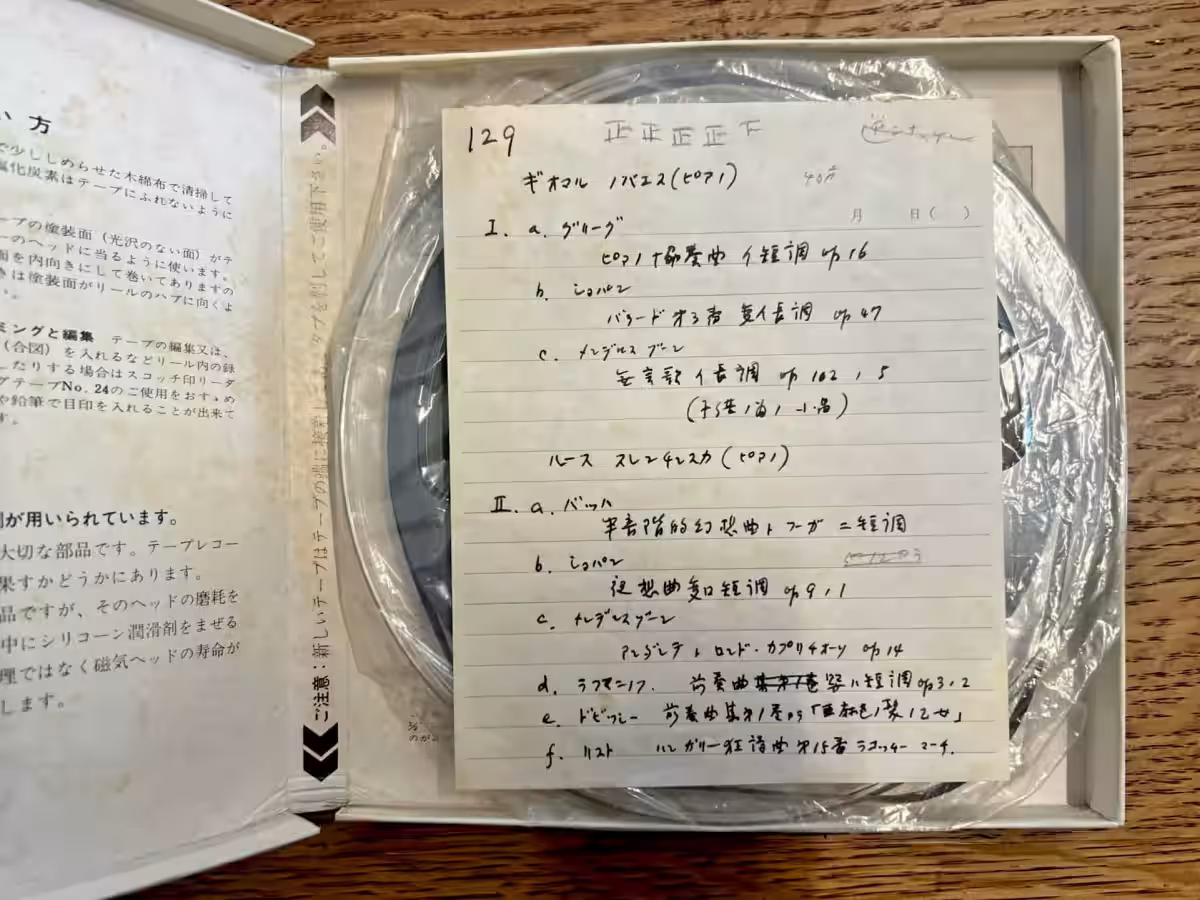 い方
で少ししめらせた木綿布で清掃して
塩化炭素はテープにふれないように
ープの塗装面（光沢のない面）がテ
ーのヘッドに当るように使います。
面を内向きにして巻いてありますの
きは塗装面がリールのハブに向くよ
い。
ミングと編集 テープの編集又は、
（合図）を入れるなどリール内の録
したりする場合はスコッチ印リーダ
グテープNo. 24のご使用をおすゝめ
や鉛筆で目印を入れることが出来て
す。
剤が用いられています。
大切な部品です。テープレコー
果すかどうかにあります。
品ですが、そのヘッドの磨耗を
中にシリコーン潤滑剤をまぜる
理ではなく磁気ヘッドの寿命が
します。
ご注意：新しいテープはテープの端に接着してあるタブを剥してご使用下さい。
129 正正正正下
ギオマル ノバエス(ピアノ) 40分
月 日( )
I. a. グリーグ
ピアノ協奏曲 イ短調 op 16
b. ショパン
バラード 第3番 変イ長調 op 47
c. メンデルスゾーン
無言歌 イ長調 op 102, 5
(子供ノ為ノ小品)
ルース スレンチンスカ(ピアノ)
II. a. バッハ
半音階的幻想曲トフーガ ニ短調
b. ショパン
夜想曲変ロ短調 op 9, 1
c. メンデルスゾーン
アンダンテト ロンド・カプリチオーソ op 14
d. ラフマニノフ. 前奏曲 嬰ハ短調 op 3, 2
e. ドビッシー 前奏曲集第1巻から「亜麻色ノ髪ノ乙女」
f. リスト ハンガリー狂詩曲 第15番 ラコッツィー マーチ.